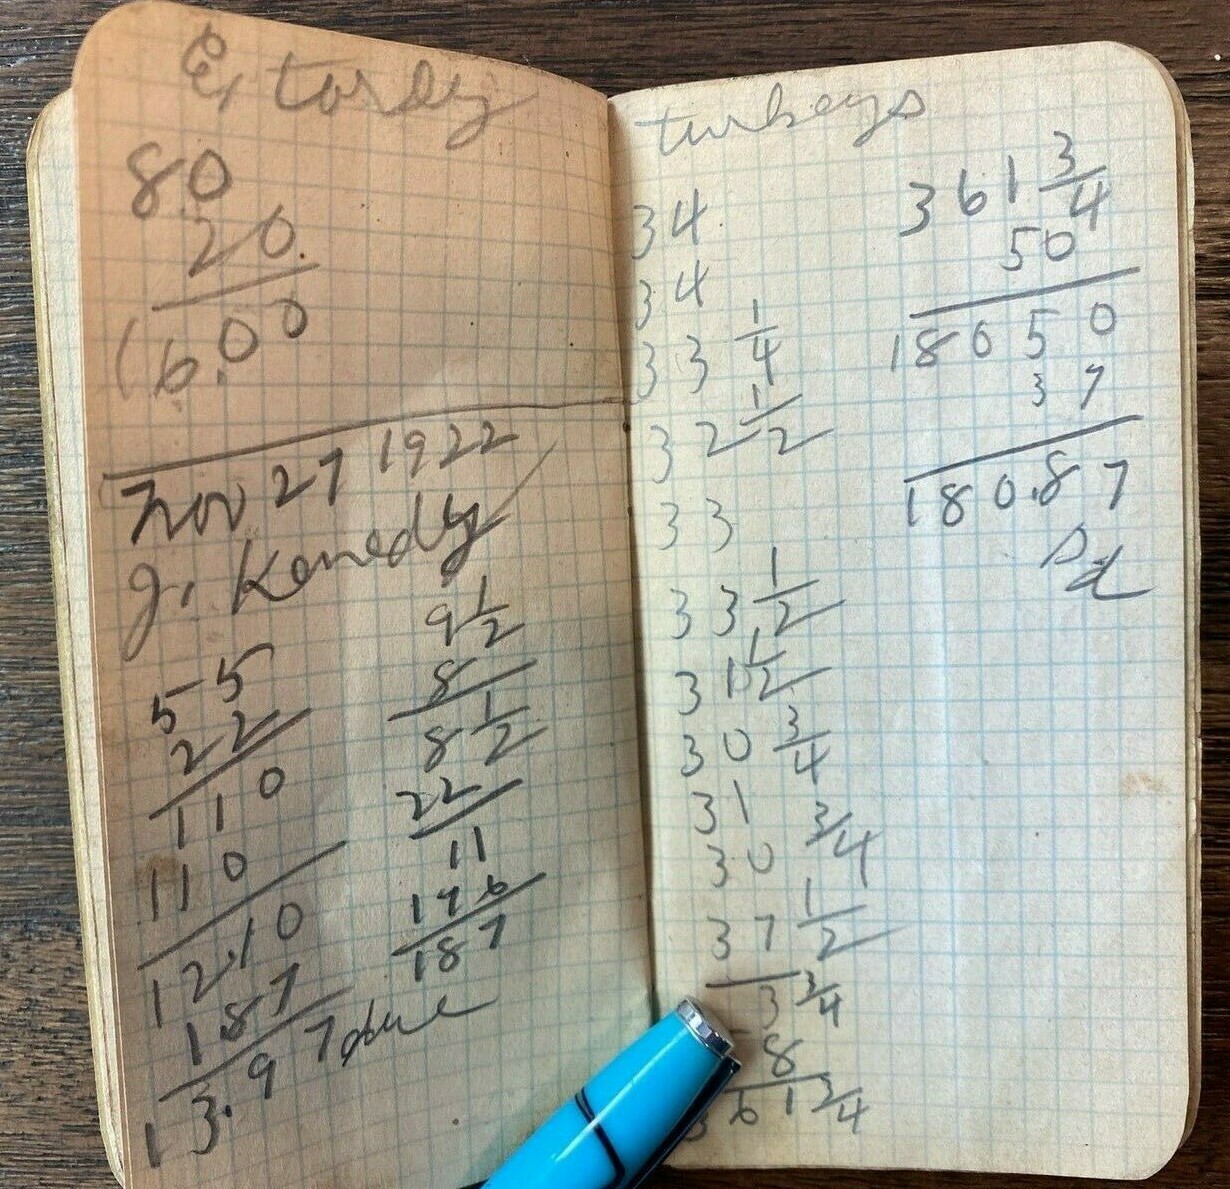 80
20.
(6.00
Nov 27 1922
J. Kenedy
55
22
110
110
12.10
187
13.97 due
9 1/2
8
8 1/2
22
11
176
187
turkeys
34
34
33 1/4
32 1/2
33
33 1/2
31 1/2
30 3/4
31
30 3/4
37 1/2
3 3/4
8
361 3/4
361 3/4
50
18050
37
180.87
Pd